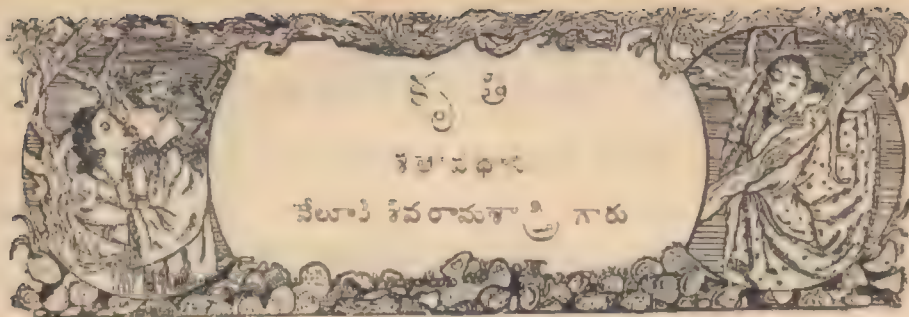 శతావధాని
వేలూరి శివరామశాస్త్రి గారు